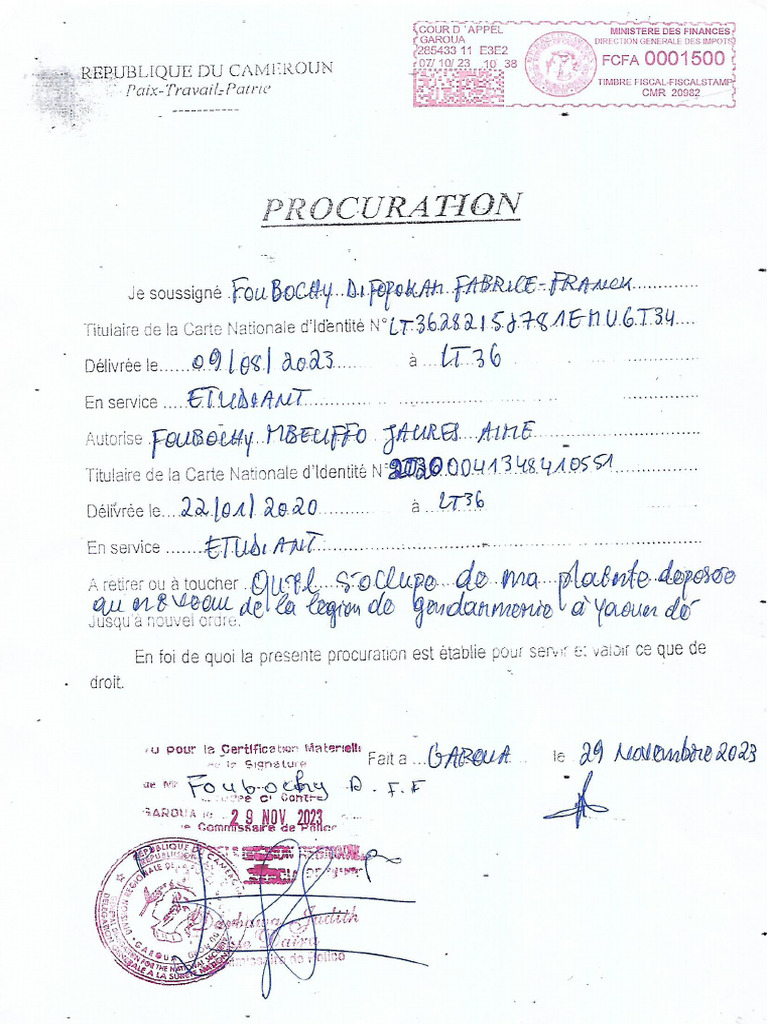 REPUBLIQUE DU CAMEROUN
Paix-Travail-Patrie
COUR D'APPEL
GAROUA
285433 11 E3E2
07/10/23 10 38
MINISTERE DES FINANCES
DIRECTION GENERALE DES IMPOTS
FCFA 0001500
TIMBRE FISCAL-FISCAL STAMP
CMR 20982
PROCURATION
Je soussigné FOUBOCHY DIFOPOKAH FABRICE-FRANCK
Titulaire de la Carte Nationale d'Identité N°
Délivrée le 09/08/2023 à LT36
En service ETUDIANT
Autorise FOUBOCHY MBEUFFO JAURES AIME
Titulaire de la Carte Nationale d'Identité N° 20200041348410551
Délivrée le 22/01/2020 à LT36
En service ETUDIANT
A retirer ou à toucher Qu'il s'occupe de ma plainte deposée
au niveau de la legion de gendarmerie à Yaoundé
Jusqu'à nouvel ordre.
En foi de quoi la présente procuration est établie pour servir et valoir ce que de
droit.
Fait a GAROUA le 29 Novembre 2023
vu pour la Certification Matérielle
de la Signature
de Mr Foubochy D.F.F
GAROUA le 29 NOV 2023
le Commissaire de Police
REPUBLIQUE DU CAMEROUN
GAROUA
Judith
Commissaire de Police